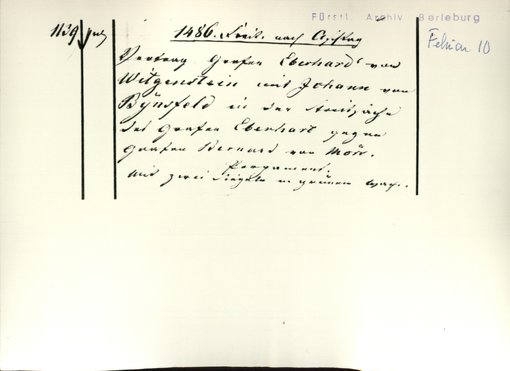 Fürstl. Archiv Berleburg
1139
1486. Freit. nach
Februar 10
Vertrag Grafen Eberhard von
Witgenstein mit Johann von
Bÿnsfeld in der Streitsache
des Grafen Eberhart gegen
Grafen Bernard von Mörs.
Pergament.
mit zwei Siegeln in grünem Wachs.